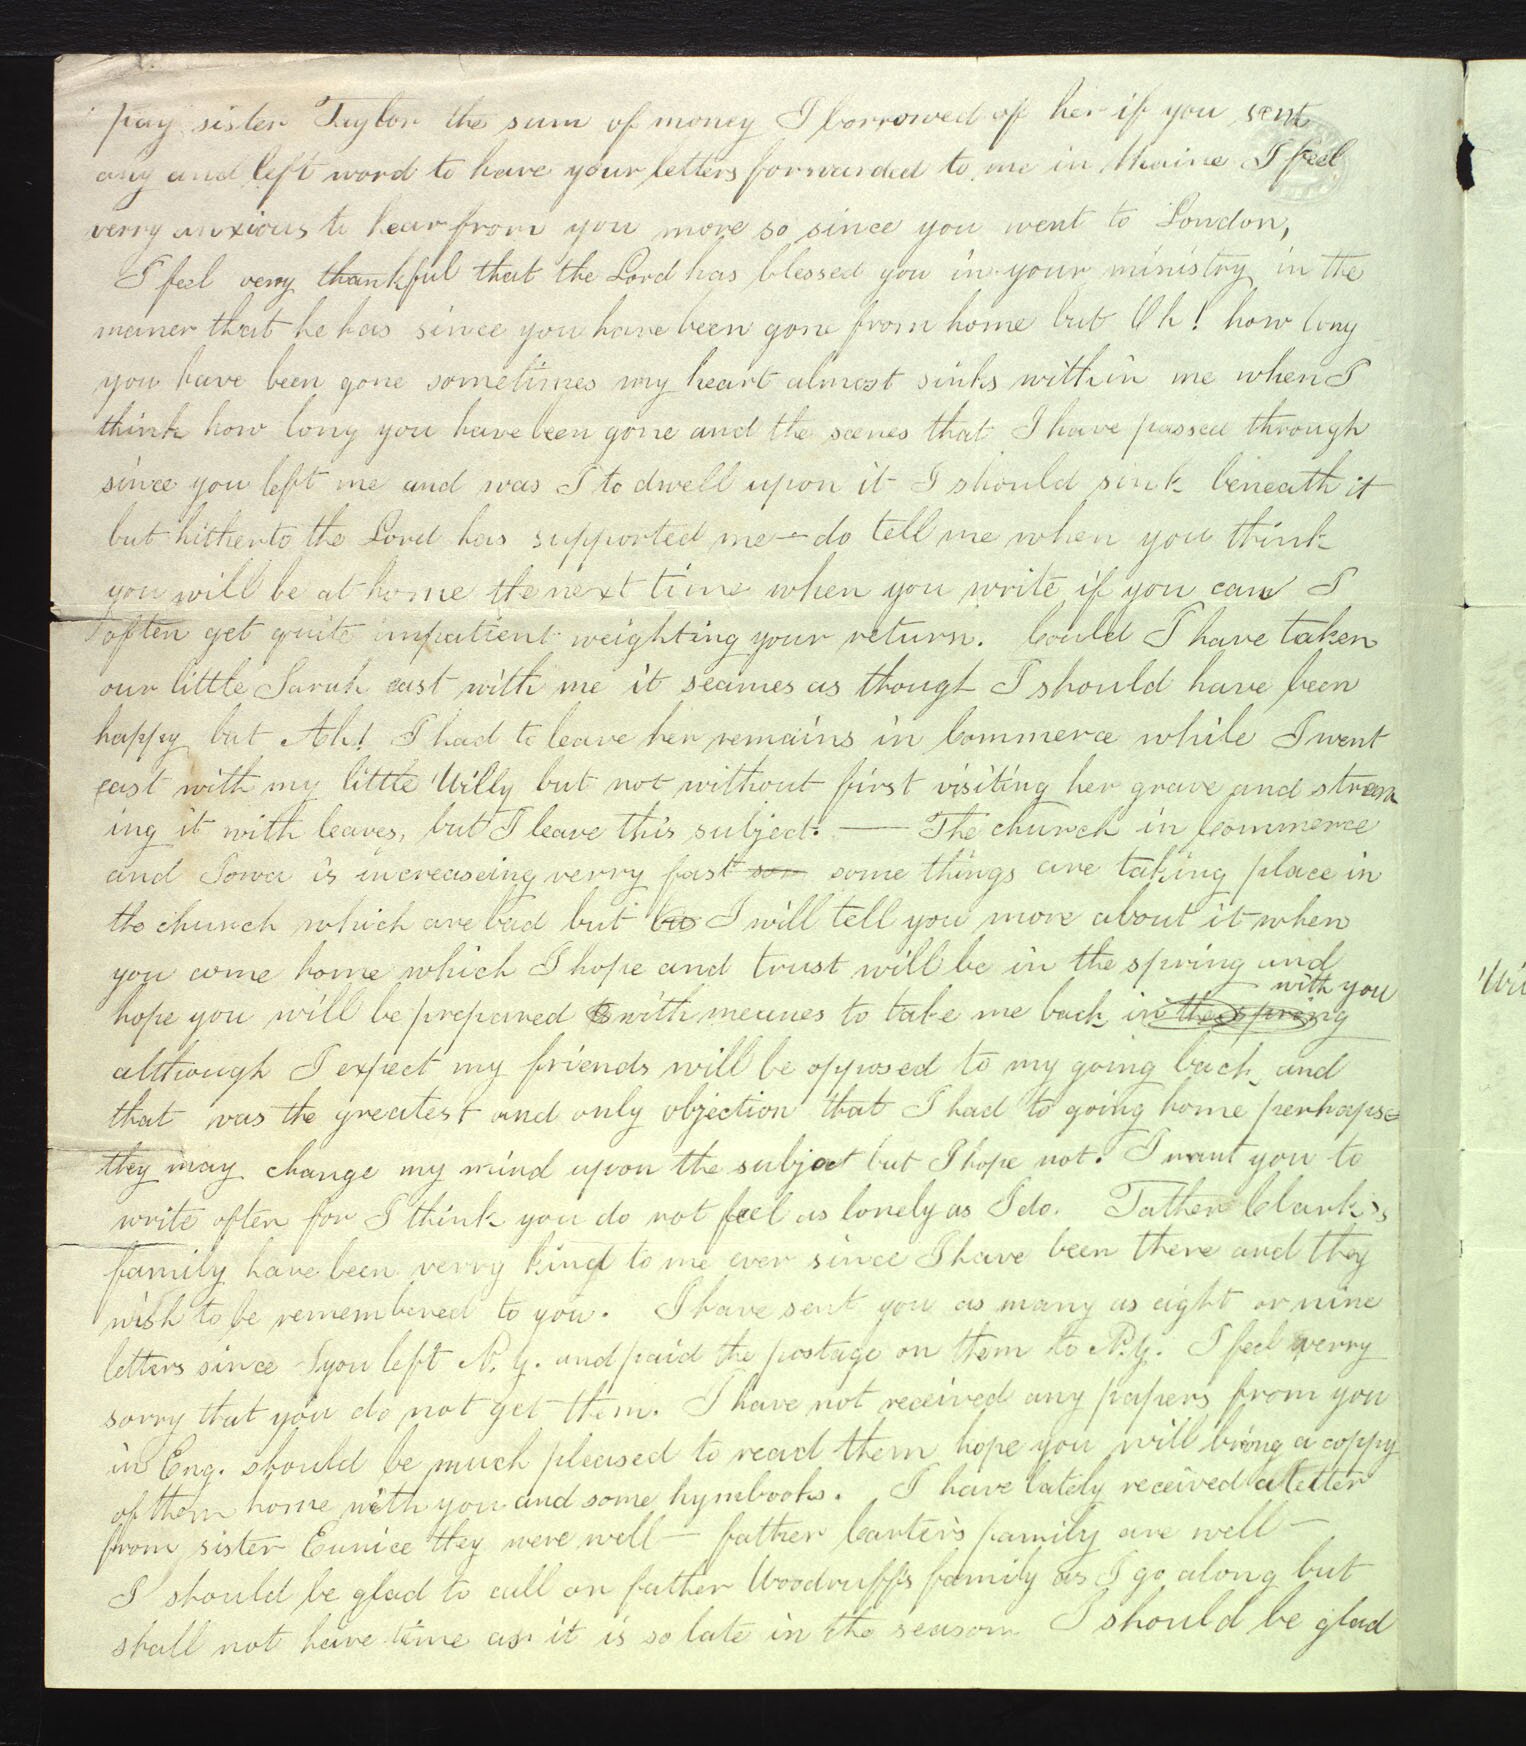 pay sister Taylor the sum of money I borrowed of her if you sent
any and left word to have your letters forwarded to me in Maine I feel
verry anxious to hear from you more so since you went to London,
I feel verry thankful that the Lord has blessed you in your ministry in the
maner that he has since you have been gone from home but Oh! how long
you have been gone sometimes my heart almost sinks within me when I
think how long you have been gone and the scenes that I have passed through
since you left me and was I to dwell upon it I should sink beneath it
but hitherto the Lord has supported me — do tell me when you think
you will be at home the next time when you write if you can I
often get quite impatient weighting your return. Could I have taken
our little Sarah east with me it seames as though I should have been
happy but Ah! I had to leave her remains in Commerce while I went
east with my little Willy but not without first visiting her grave and strew
ing it with leaves, but I leave this subject. — The church in Commerce
and Iowa is increaseing verry fast som some things are taking place in
the church which are bad but but I will tell you more about it when
you come home which I hope and trust will be in the spring and
with you
hope you will be prepared with meanes to take me back in the spring
although I expect my friends will be opposed to my going back and
that was the greatest and only objection that I had to going home perhapse
they may change my mind upon the subject but I hope not. I want you to
write often for I think you do not feel as lonely as I do. Father Clark's
family have been verry kind to me ever since I have been there and they
wish to be remembered to you. I have sent you as many as eight or nine
letters since you left N. Y. and paid the postage on them to N.Y. I feel verry
sorry that you do not get them. I have not received any papers from you
in Eng. should be much pleased to read them hope you will bring a coppy
of them home with you and some hymbooks. I have lately received a letter
from sister Eunice they were well — father Carter's family are well —
I should be glad to call on father Woodruff's family as I go along but
shall not have time as it is so late in the season I should be glad